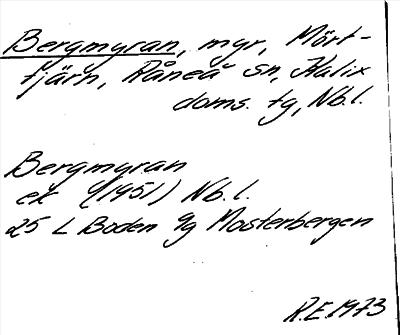 Bergmyran, myr, Mört-
tjärn, Råneå sn, Kalix
doms. tg, Nb.l.
Bergmyran
ek (1951) Nb.l.
25 L Boden 9g Mosterbergen
R.E. 1973